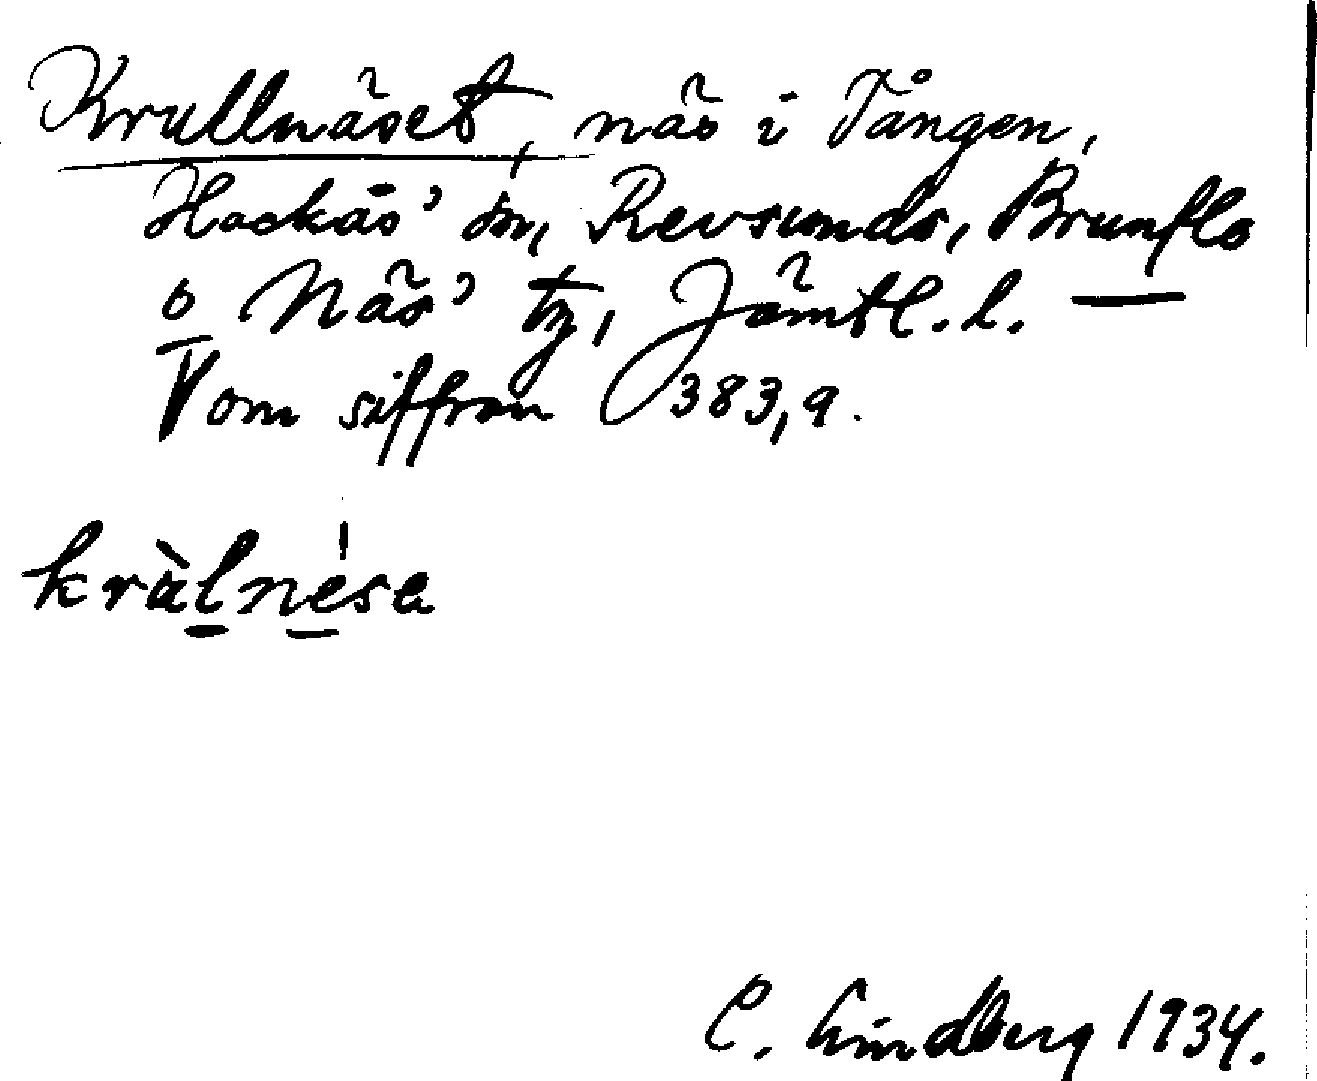 Krullnäset, näs i Tången,
Hackås' sn, Revsunds, Brunflo
o Näs' tg, Jämtl. l. —
V om siffran 383,9.
kràlnésa
C. Lindberg 1934.